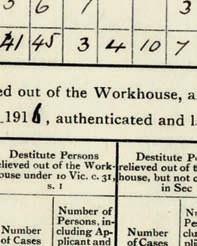 3 6 1 3
41 45 3 4 10 7
ed out of the Workhouse, a
1916, authenticated and l
Destitute Persons
elieved out of the Work-
ouse under 10 Vic. c. 31,
s. 1
Destitute P
relieved out of t
house, but not c
in Sec
Number
of Cases
Number of
Persons, in-
cluding Ap-
plicant and
Number
of Cases
Nu
Per
clu
pli